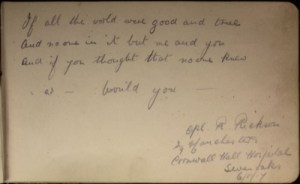 If all the world were good and true
And no one in it but me and you
And if you thought that no one knew
- would you -
Cpl. R.
2/ Manchesters
Cornwall Hall Hospital
Sevenoaks